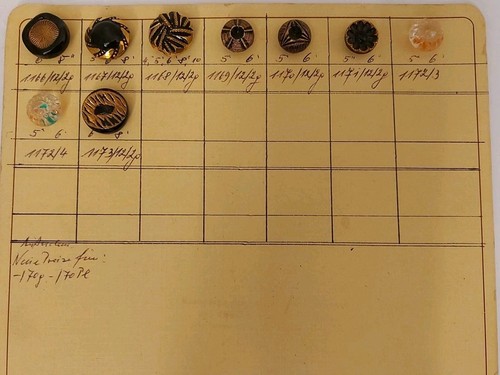 6 8"
5 8'
4, 5, 6' 8' 10
5' 6'
5' 6'
5' 6'
5' 6'
1166/12/2g 1167/12/2g 1168/12/2g 1169/12/2g 1170/12/2g 1171/12/2g 1172/3
5' 6' 6' 8'
1172/4 1173/12/2g
Neue Preise für:
-170g - 170 Pl